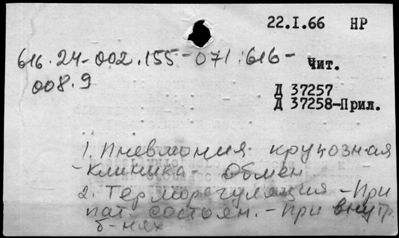 22.I.66 НР
616.24-002.155-071:616-
008.9
Чит.
Д 37257
Д 37258-Прил.
1. Пневмония крупозная
- Клиника - Обмен
2. Терморегуляция - При
пат. состоян. - При внутр.
б-нях